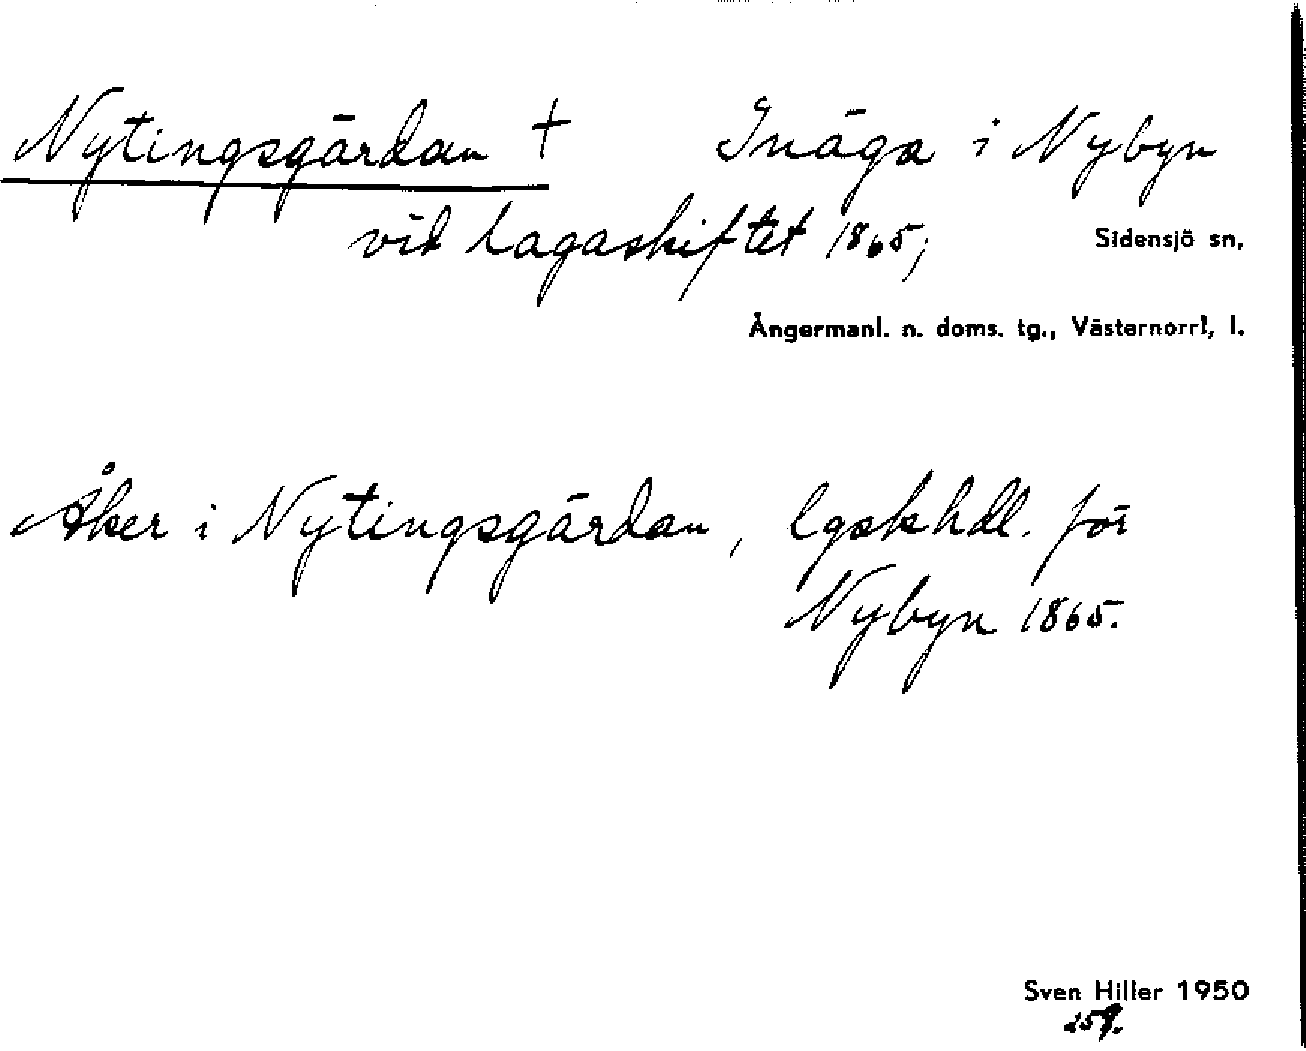 Nytingsgärdan † Inäga i Nybyn
vid lagaskiftet 1865;
Sidensjö sn.
Ångermanl. n. doms. tg., Västernorrl. l.
Åker i Nytingsgärdan, lgskhdl. för
Nybyn 1865.
Sven Hiller 1950